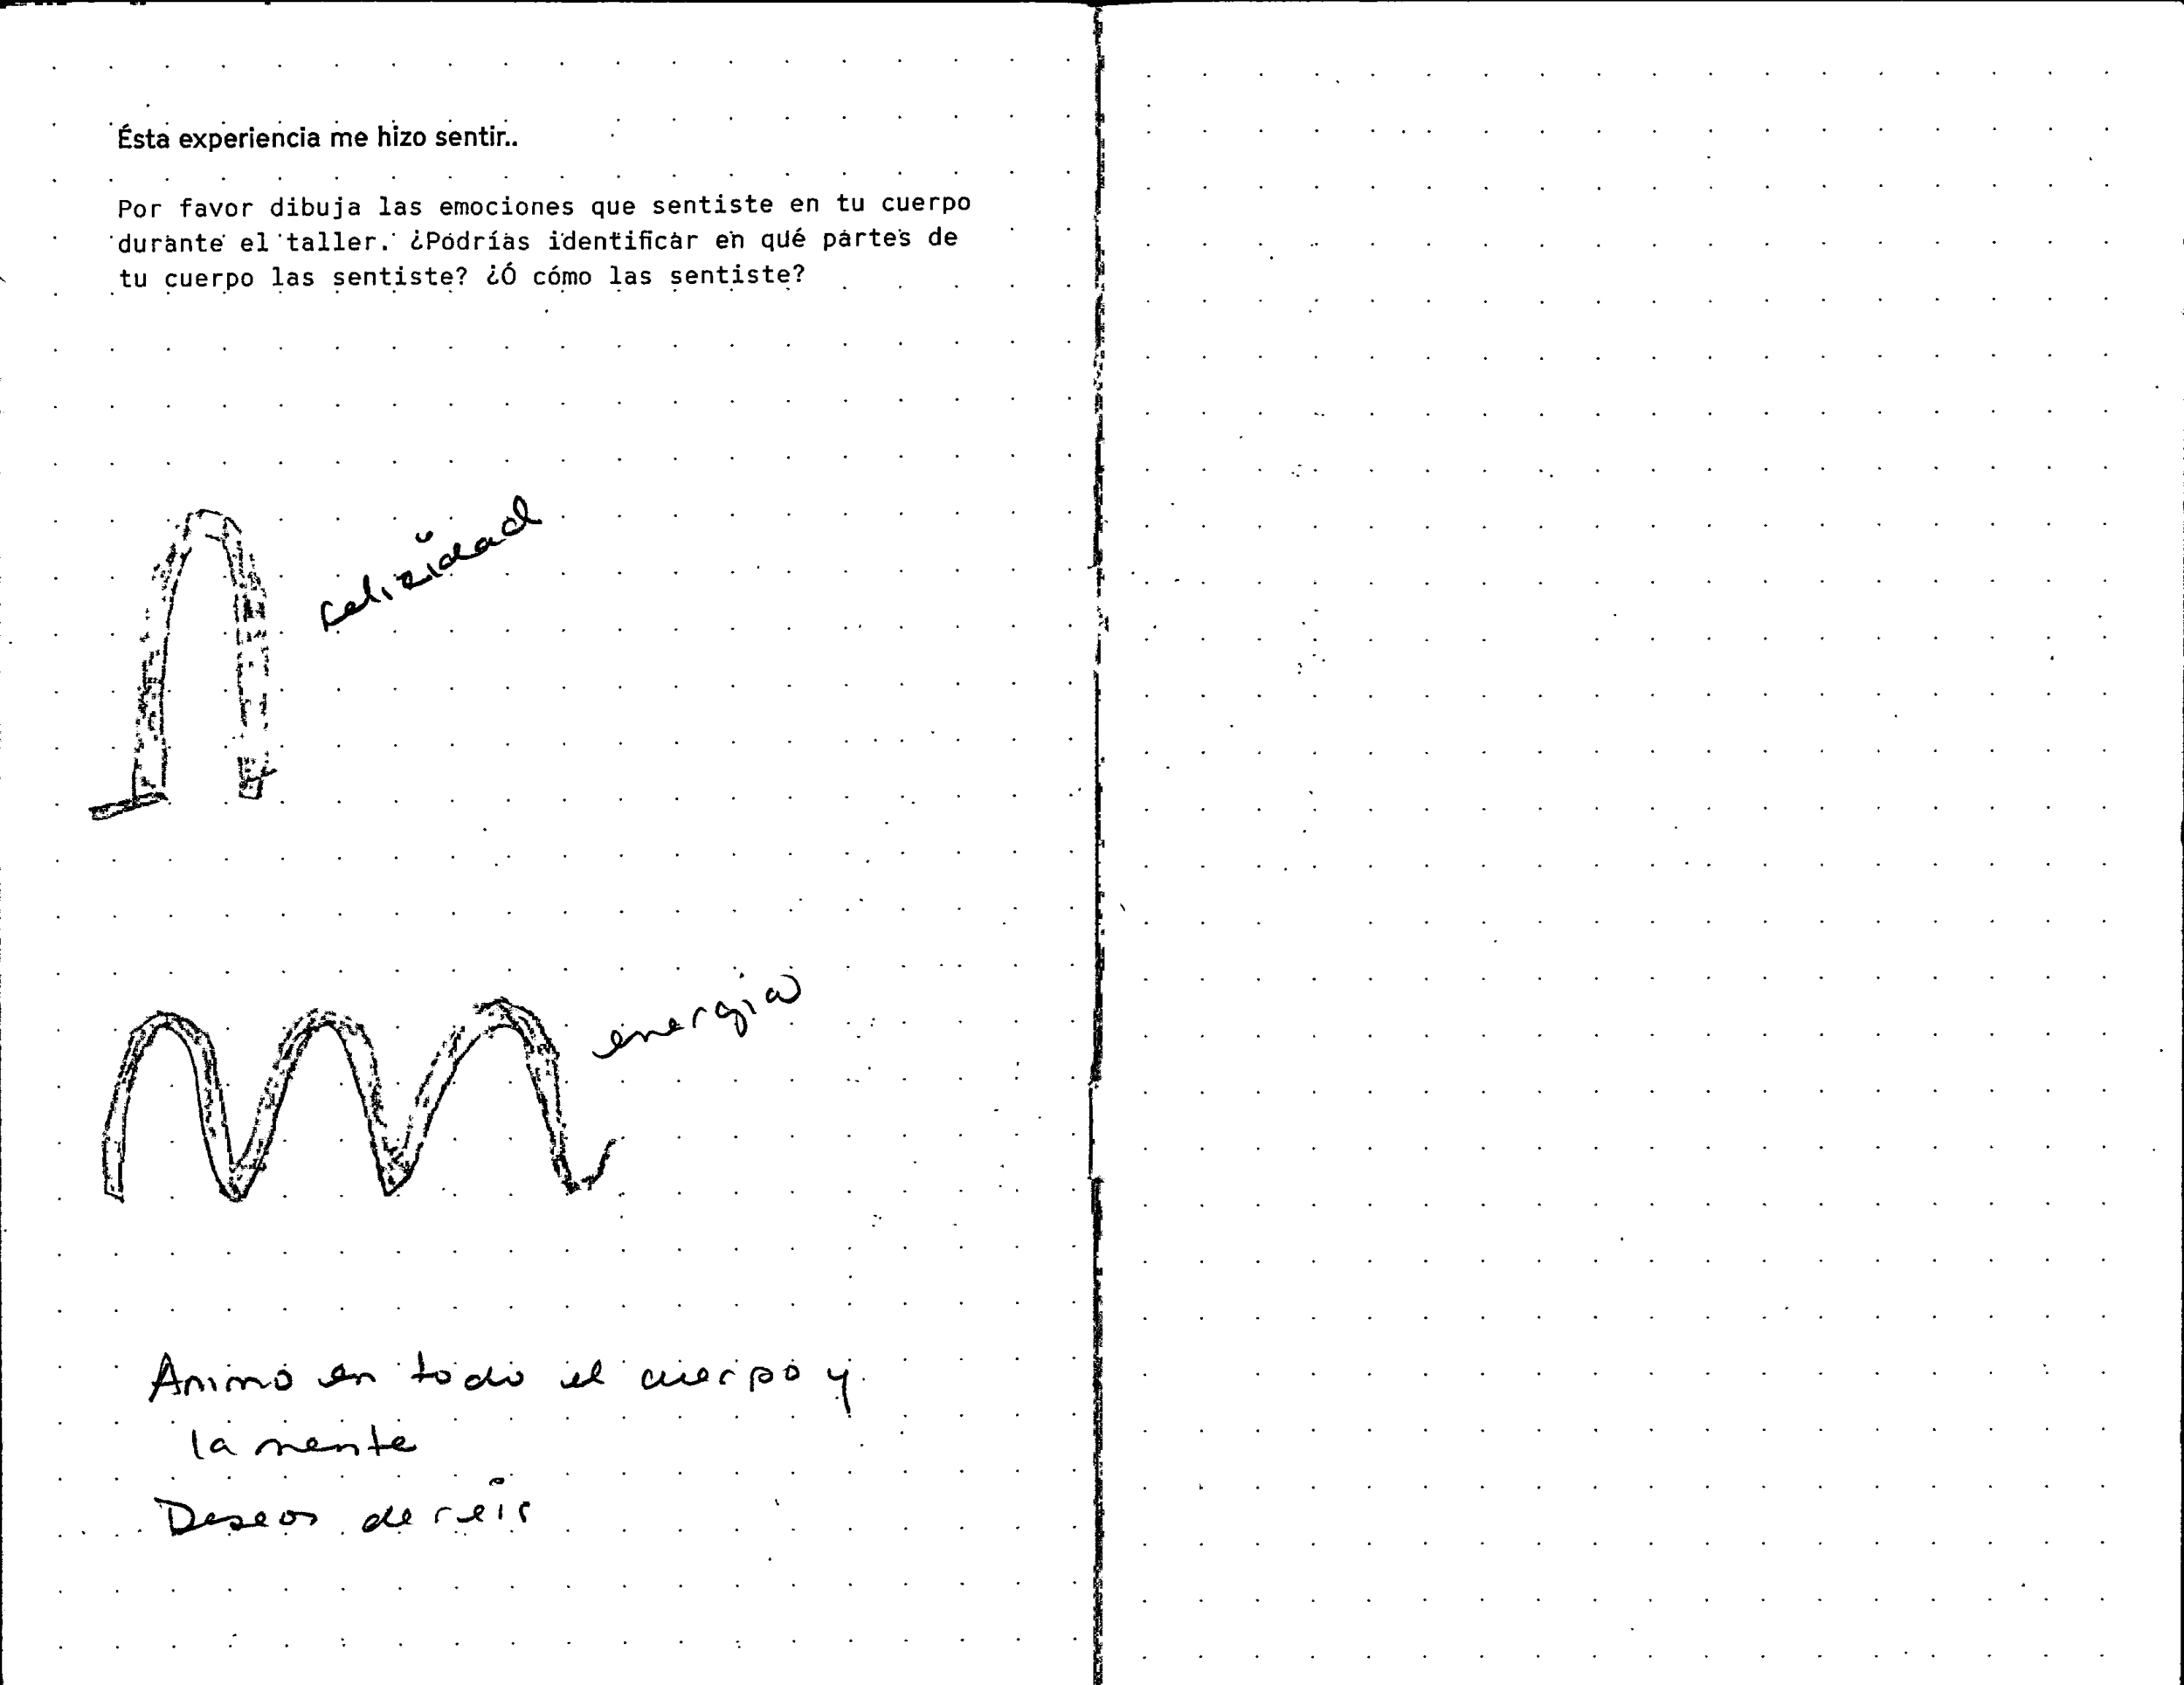 Ésta experiencia me hizo sentir..
Por favor dibuja las emociones que sentiste en tu cuerpo
durante el taller. ¿Podrías identificar en qué partes de
tu cuerpo las sentiste? ¿Ó cómo las sentiste?
felizidad
energia
Animo en todo el cuerpo y
la mente
Deseos de reir